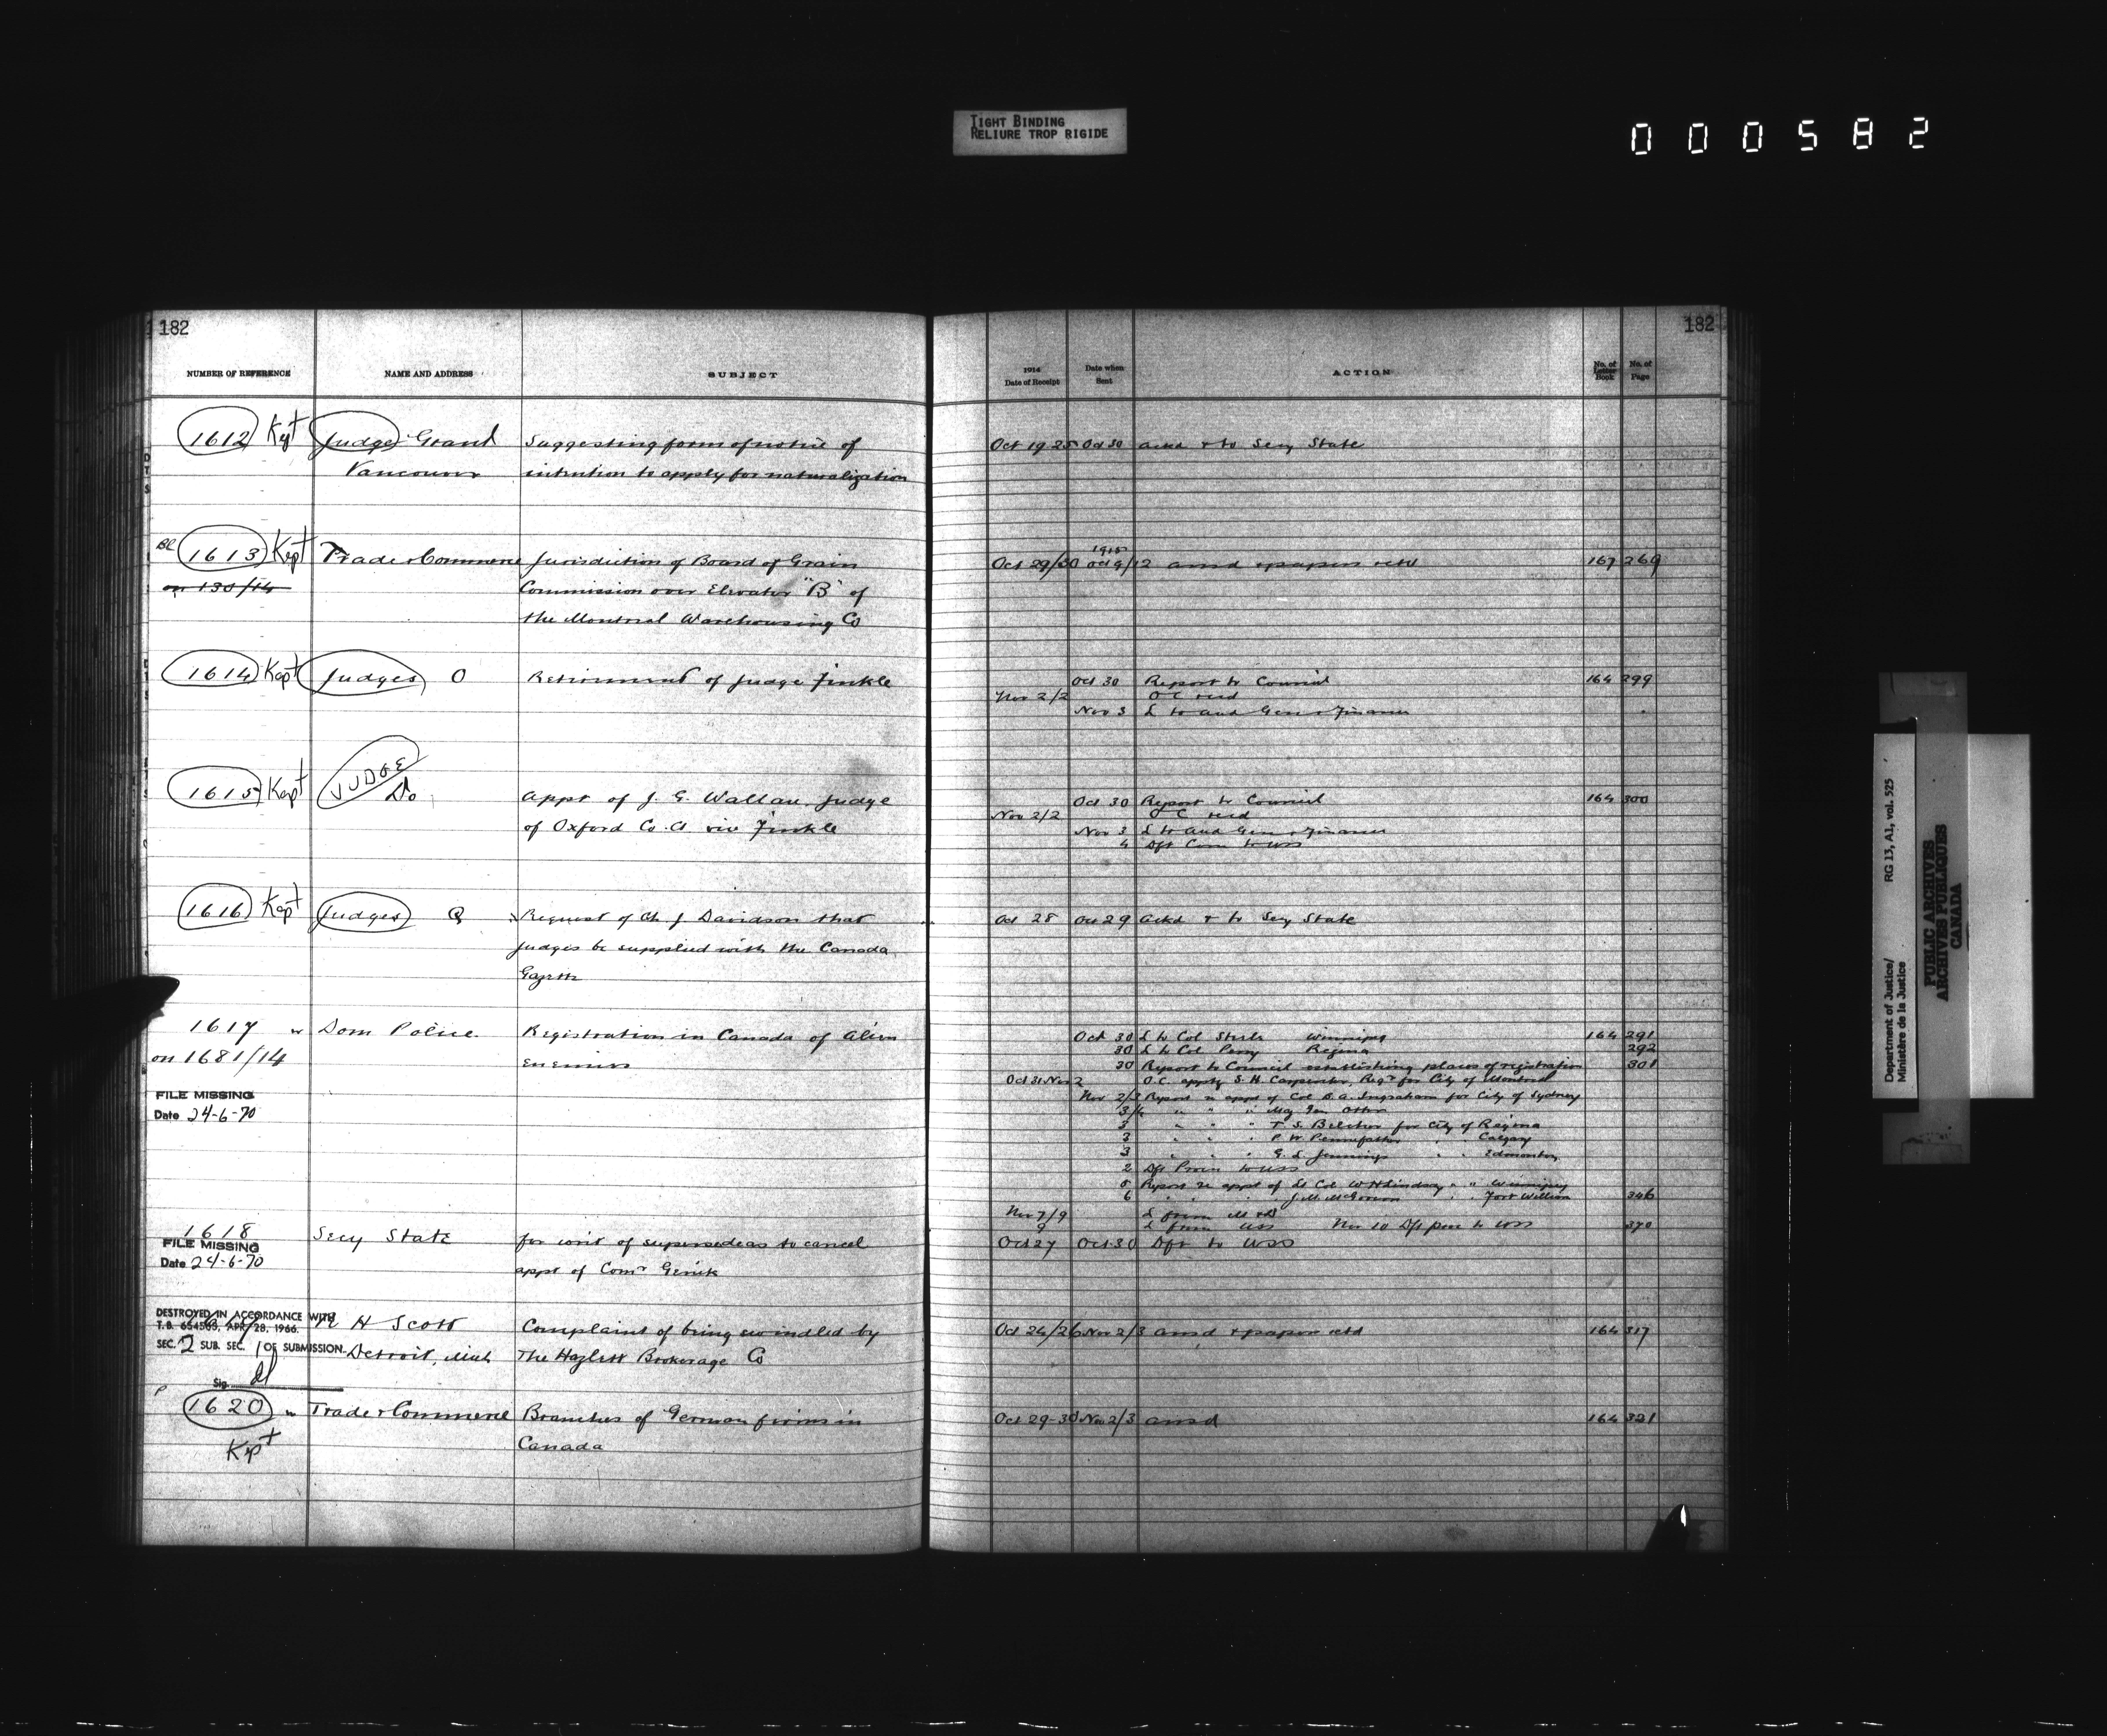 TIGHT BINDING
RELIURE TROP RIGIDE
000582
182
NUMBER OF REFERENCE NAME AND ADDRESS SUBJECT
1612 Kept Judge Grant Suggesting form of notice of
Vancouver intention to apply for naturalization
BC 1613 Kept Trade & Commerce Jurisdiction of Board of Grain
on 130/14 Commission over Elevator "B" of
the Montreal Warehousing Co
1614 Kept Judges O Retirement of Judge Finkle
1615 Kept JUDGE Do appt of J. G. Wallace Judge
of Oxford Co. Ct. vice Finkle
1616 Kept Judges Q Request of Ch. J Davidson that
judges be supplied with the Canada
Gazette
1617 Dom Police Registration in Canada of alien
on 1681/14 enemies
FILE MISSING
Date 24-6-70
1618 Secy State for writ of supersedeas to cancel
FILE MISSING
Date 24-6-70 appt of Comr
DESTROYED IN ACCORDANCE WITH H Scott Complaint of being swindled by
T.B. 654565, APR 28, 1966.
SEC. 2 SUB. SEC. 1 OF SUBMISSION Detroit, Mich The Hazlett Brokerage Co
Sig.
P
1620 Trade & Commerce Branches of German firms in
Kept Canada
182
1914 Date of Receipt Date when Sent ACTION No. of Letter Book No. of Page
Oct 19 25 Oct 30 ackd & to Secy State
1915
Oct 29/30 Oct 9/12 ansd & papers retd 167 269
Oct 30 Report to Council 164 299
Nov 2/2 OC recd
Nov 3 L to Aud Genl & Finance
Oct 30 Report to Council 164 300
Nov 2/2 OC recd
Nov 3 L to Aud Genl & Finance
4 Dft Com to USS
Oct 28 Oct 29 ackd & to Secy State
Oct 30 L to Col Steele Winnipeg 164 291
30 L to Col Perry Regina 292
30 Report to Council establishing places of registration 301
Oct 31 Nov 2 O.C. apptg S. H. Carpenter, Regr for City of Montreal
Nov 2/3 Report re appt of Col B. A. Ingraham for City of Sydney
3/4 " " " Maj Gen Otter
3 " " " T. S. Belcher for City of Regina
3 " " " P. W. Pennefather Calgary
3 " " " G. L. Jennings " " Edmonton
2 Dft Procn to USS
5 Report re appt of Lt Col W H Lindsay " " Winnipeg
6 Fort William 346
Nov 7/9 L from
9 L from USS Nov 10 Dft to USS 370
Oct 27 Oct 30 Dft to USS
Oct 24/26 Nov 2/3 ansd & papers retd 164 317
Oct 29-30 Nov 2/3 ansd 164 321
Department of Justice/ RG 13, A1, vol. 525
Ministère de la Justice
PUBLIC ARCHIVES
ARCHIVES PUBLIQUES
CANADA